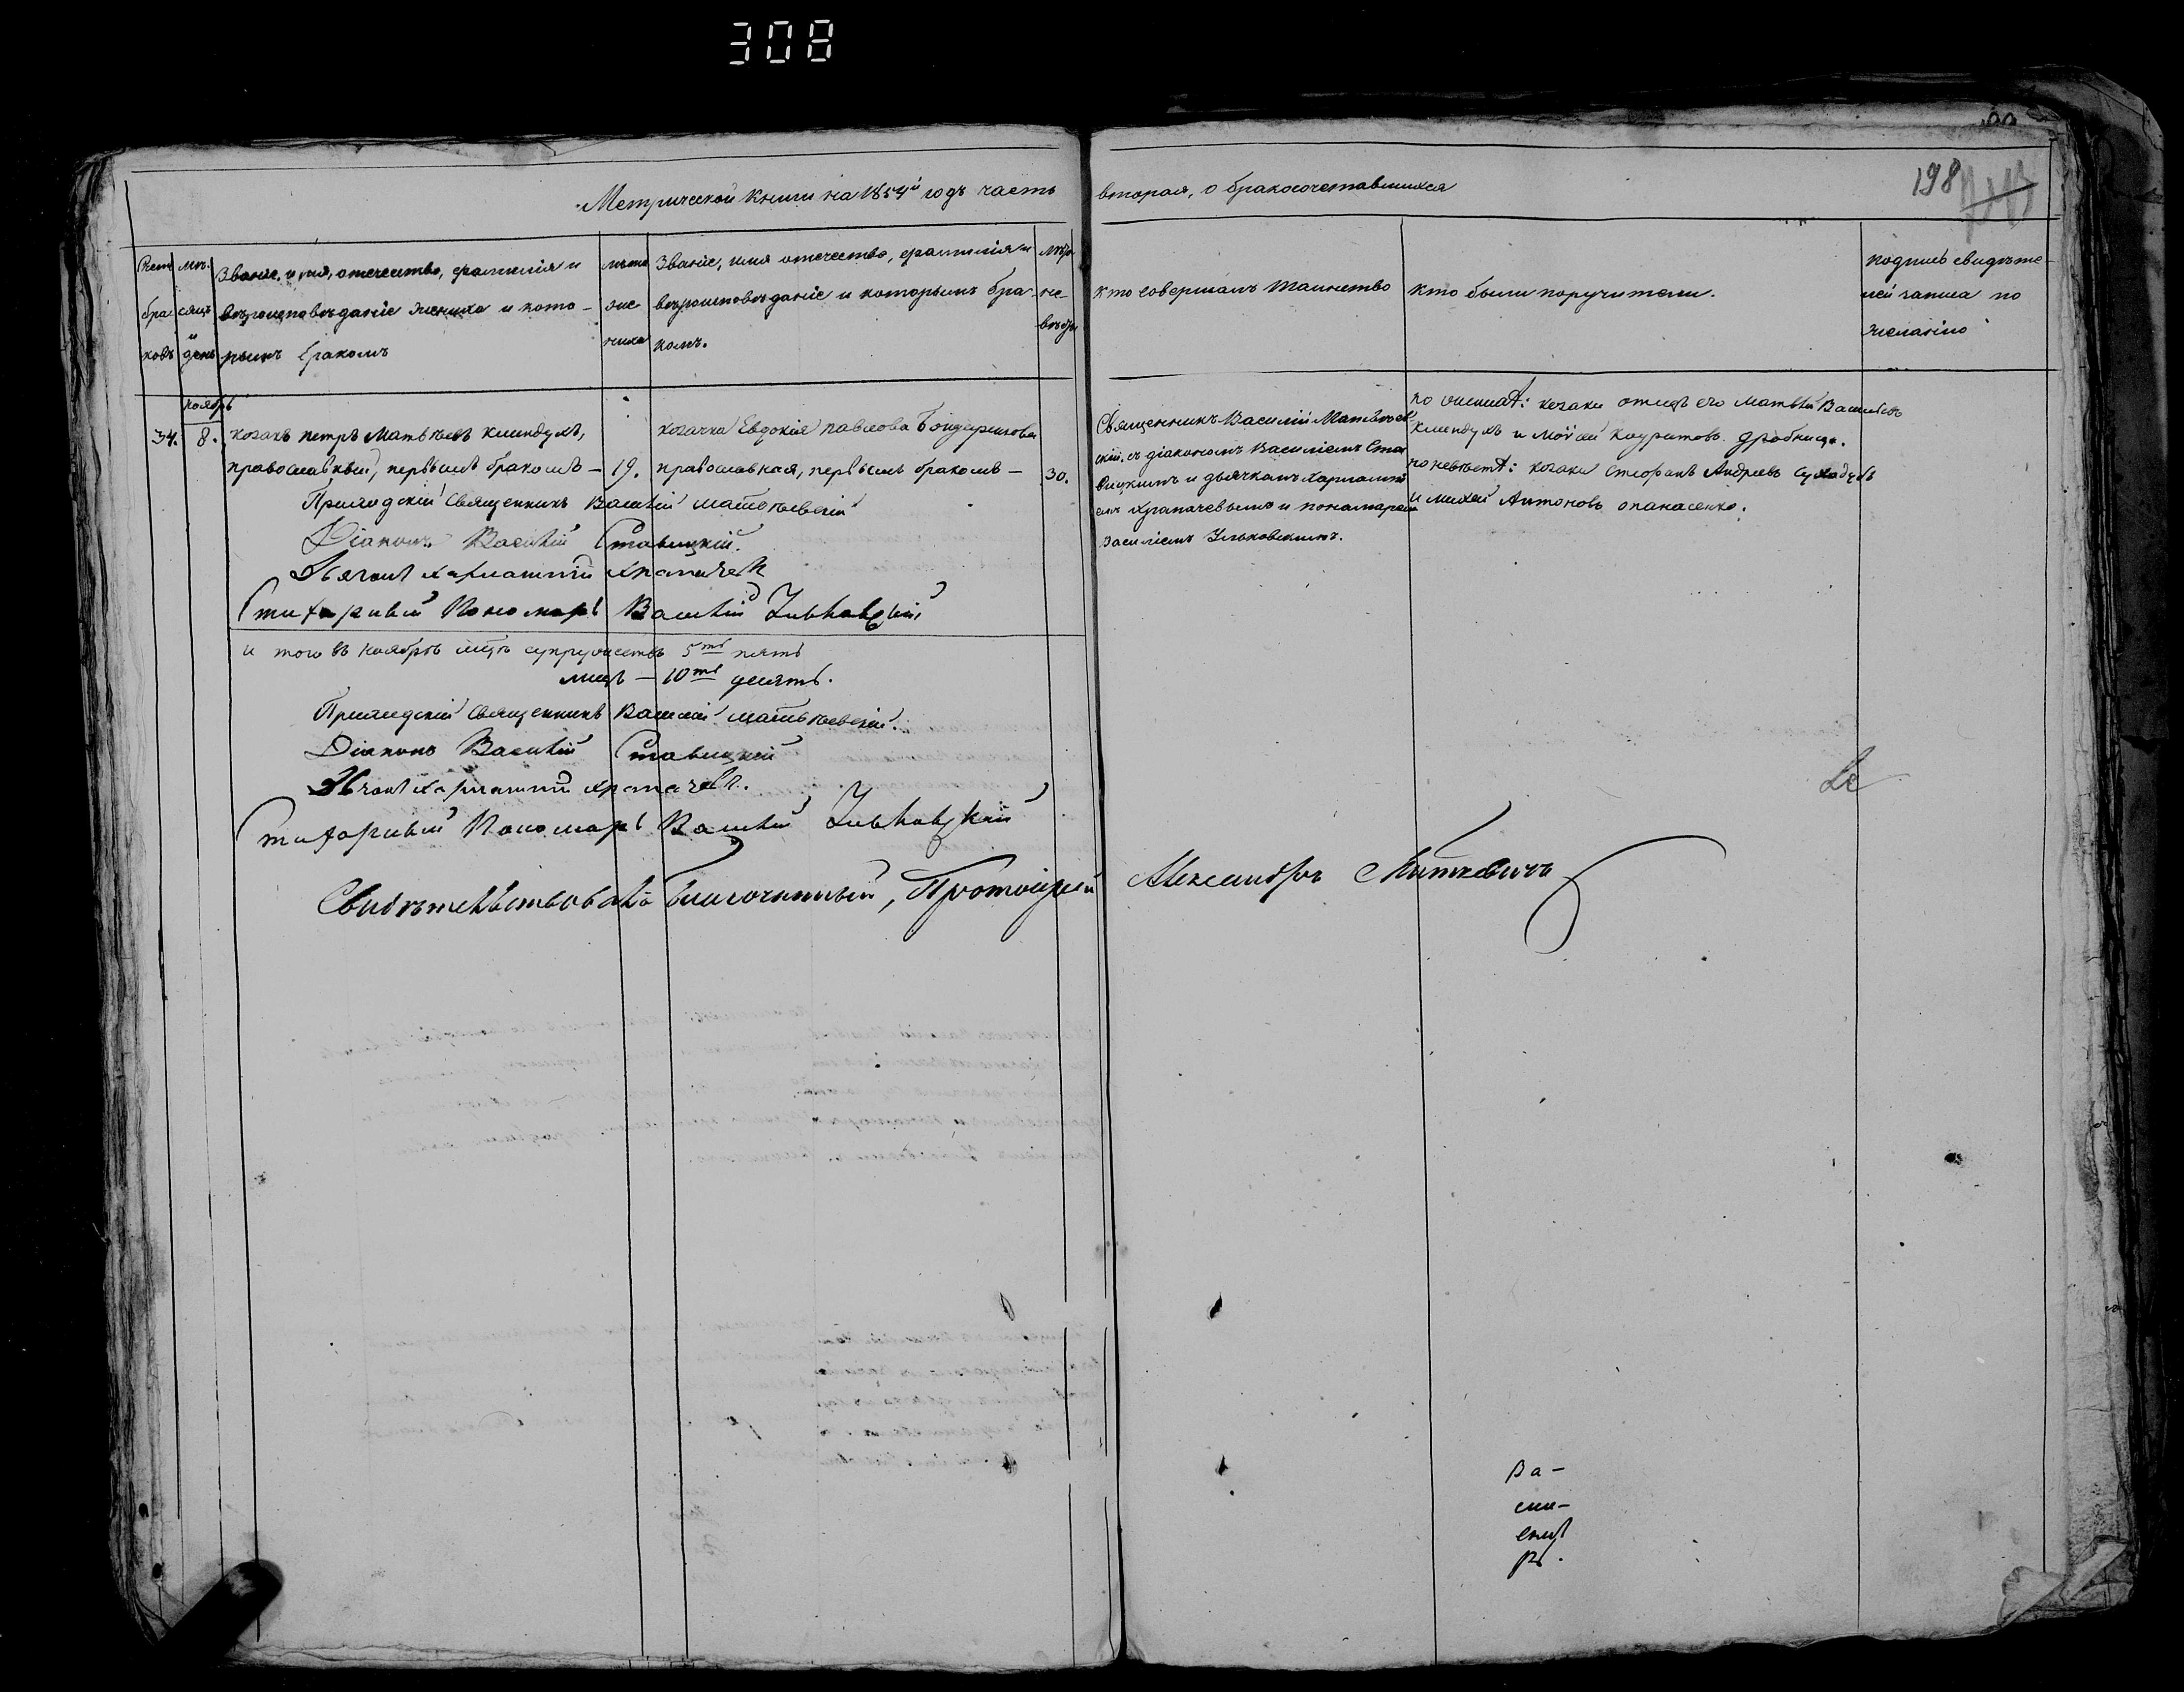 308
Метрической книги на 1854й годъ часть вторая, о бракосочетавшихся
198
Счетъ браковъ
мѣсяцъ и день
Званіе, имя, отечество, фамилія и
вѣроисповѣданіе жениха и кото-
рымъ бракомъ
лѣта
же-
ниха
Званіе, имя отечество, фамилія и
вѣроисповѣданіе и которымъ бра-
комъ.
лѣта
не-
вѣсты
кто совершалъ таинство
кто были поручители.
подпись свидѣте-
лей записи по
желанію
ноябрь
34.
8.
козакъ петръ Матвѣевъ клиндухъ,
православный, первымъ бракомъ —
19.
козачка Евдокія павлова Бондаренкова
православная, первымъ бракомъ —
30.
Священникъ Василій Матвѣев-
скій, съ діакономъ Василіемъ Ста-
вицкимъ и дьячкомъ Харлампі-
емъ Храпачевымъ и пономаремъ
Василіемъ
по женихѣ: козаки отецъ его Матвѣй Васильевъ
клиндухъ и Моѵсей дробница.
по невѣстѣ: козаки Стефанъ Андреевъ Суходубъ
и михей Антоновъ опанасенко.
Приходскій Священникъ Василій матвѣевскій
Діаконъ Василій Ставицкій.
Дьячокъ Харлампій Храпачевъ
Стихарный Пономарь Василій
и того въ ноябрѣ мцѣ супружествъ 5ть пять
лицъ — 10ть десять.
Приходскій Священникъ Василій матвѣевскій.
Діаконъ Василій Ставицкій
Дьячокъ Харлампій Храпачевъ.
Стихарный Пономарь Василій
Свидѣтельствовалъ благочинный, Протоіерей Александръ Миткевичъ
Ва-
си-